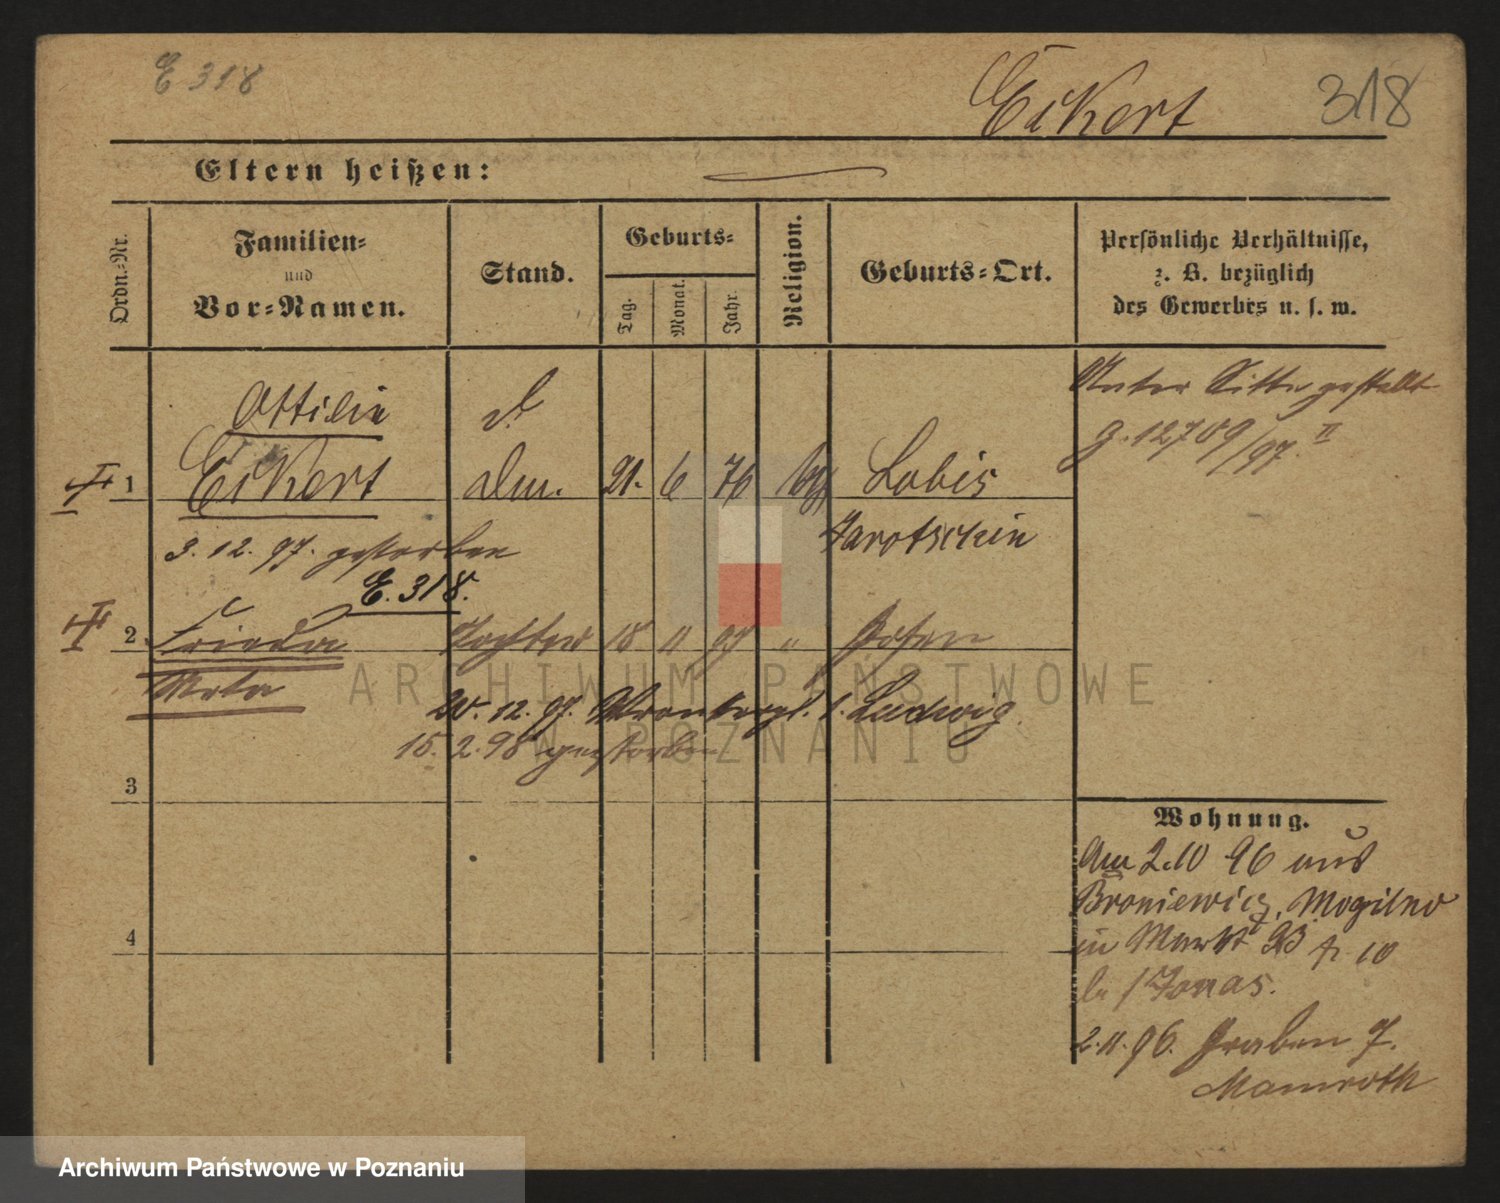 E 318
Eckert 318
Eltern heißen:
Ordn.-Nr.
Familien-
und
Vor-Namen.
Stand.
Geburts-
Tag.
Monat.
Jahr.
Religion.
Geburts-Ort.
Persönliche Verhältnisse,
z. B. bezüglich
des Gewerbes u. s. w.
Ottilie
Unter Sitte gestellt
g. 12709/97. II
1 Eckert 21. 6 76 Lobis
Jarotschin
3. 12. 97. gestorben
E. 318.
2 Frieda Tochter 18 11 97 " Posen
Meta
20. 12. 97. Ludwig
15. 2. 98 gestorben
3
4
Wohnung.
Am 2.10 96 aus
Broniewicz, Mogilno
in Markt 93 10
b/ Jonas.
2. 11. 96. Graben 7.
Mamroth
ARCHIWUM PAŃSTWOWE
W POZNANIU
Archiwum Państwowe w Poznaniu